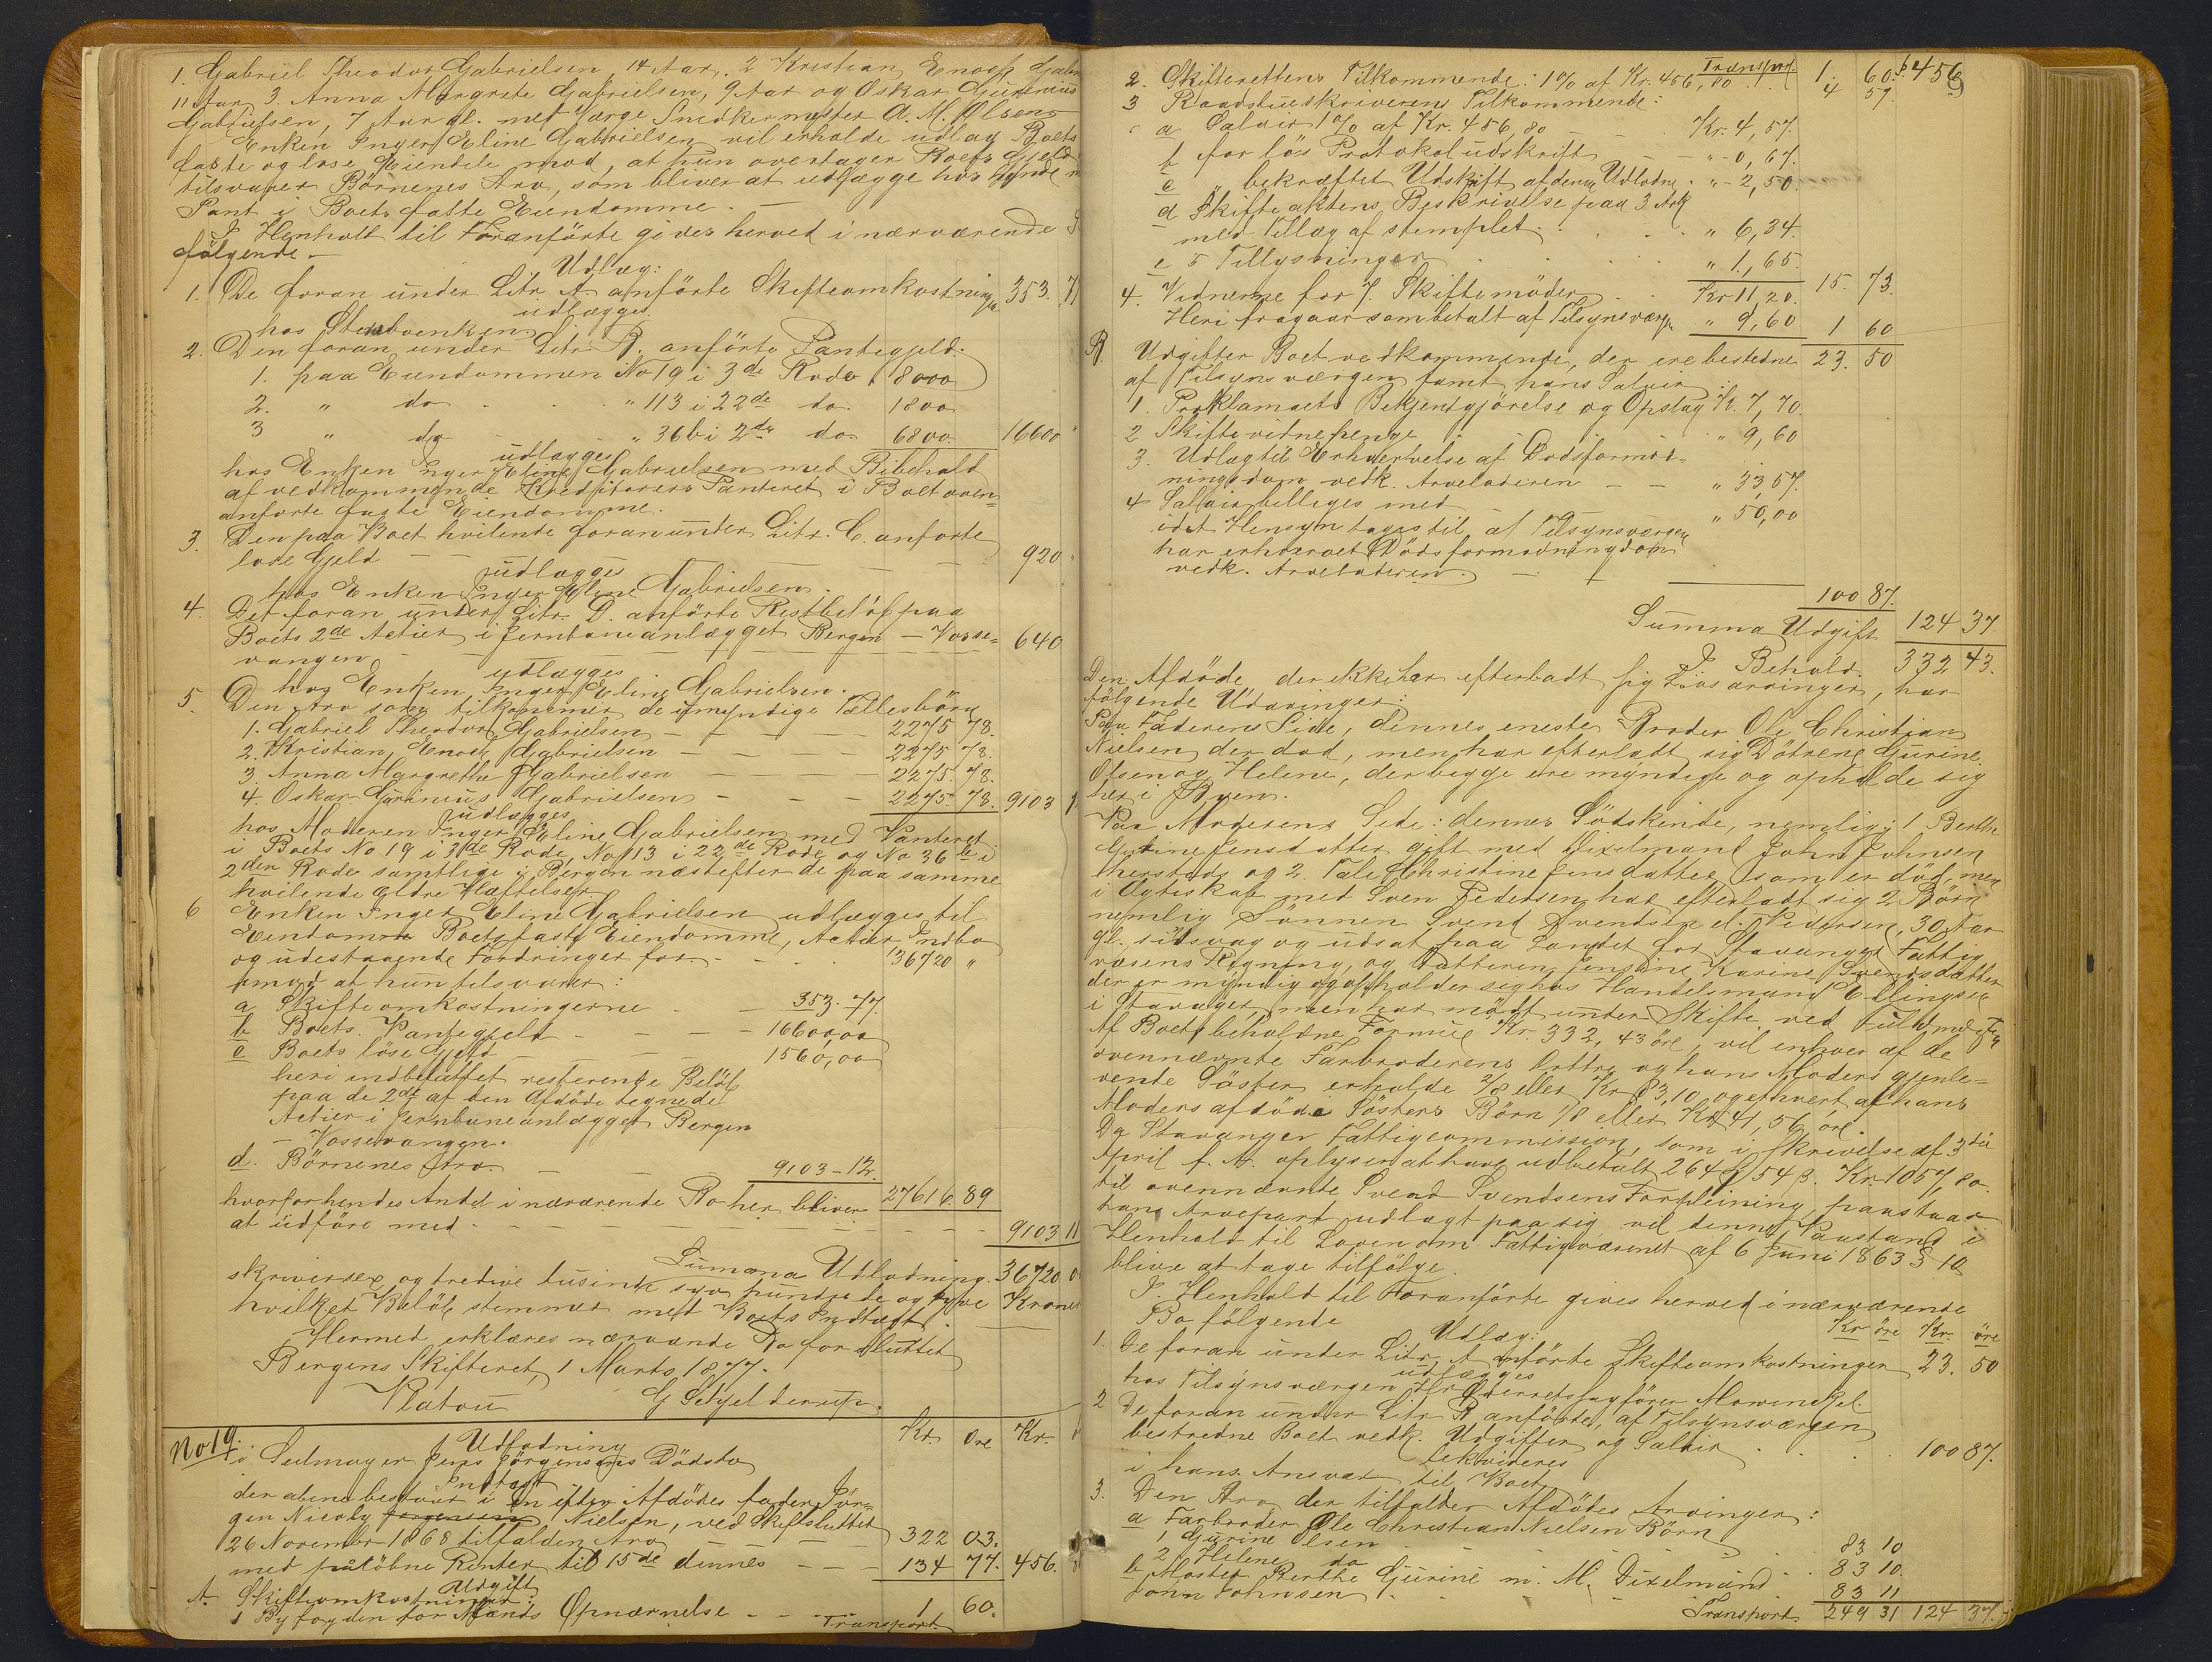 1. Gabriel Theodor Gabrielsen 14 Aar, 2 Kristian Enoch Gabri
11 Aar, 3. Anna Margrete Gabrielsen, 9 Aar og Oskar Gurinius
Gabrielsen, 7 Aar gl. med Værge Snedkermester A. M. Olsen
Enken Inger Eline Gabrielsen vil erholde udlagt Boets
faste og løse Eiendele mod, at hun overtager Boets Gjeld
tilsvarer Börnenes Arv, som bliver at udlægge hos hende m
Pant i Boets faste Eiendomme. —
I Henhold til Foranförte gives herved i nærværende
fölgende —
Udlæg:
1. De foran under Litr. A anförte Skifteomkostninger 353. 77
udlægges
hos Stervboenken
2. Den foran under Litr. B. anförte Pantegjeld:
1. paa Eiendommen No 19 i 3de Rode 8000
2. " do " 113 i 22de do. 1800
3 " do " 36b i 2de do 6800 16600
udlægges
hos Enken Inger Eline Gabrielsen med Bibehold
af vedkommende Kreditorers Panteret i Boet oven=
anförte faste Eiendomme.
3. Den paa Boet hvilende foran under Litr. C. anförte
løse Gjeld — — — — 920
udlægges
hos Enken Inger Eline Gabrielsen.
4. Det foran under Litr. D. anförte Restbelöb paa
Boets 2de Actier i Jernbaneanlægget Bergen — Vosse= 640
vangen
udlægges
hos Enken Inger Eline Gabrielsen.
5. Den Arv som tilkommer de umyndige Fællesbörn
1. Gabriel Theodor Gabrielsen — — 2275 78.
2. Kristian Enoch Gabrielsen — — 2275 78.
3. Anna Margrethe Gabrielsen — — 2275 78.
4. Oskar Gurinius Gabrielsen — — 2275 78. 9103 1
udlægges
hos Moderen Inger Eline Gabrielsen med Panteret
i Boets No 19 i 3de Rode, No 113 i 22de Rode og No 36 b i
2den Rode samtlige i Bergen næstefter de paa samme
hvilende ældre Hæftelser
6 Enken Inger Eline Gabrielsen udlægges til
Eiendom Boets faste Eiendomme, Actier Indbo
og udestaaende Fordringer for — 36720 "
imod at hun tilsvarer:
a Skifteomkostningerne — 353. 77.
b Boets Pantegjeld — — 16600,00
c Boets löse Gjeld — — 1560,00
heri indbefattet resterende Belöb
paa de 2de af den Afdöde tegnede
Actier i Jernbaneanlægget Bergen
— Vossevangen.
d. Börnenes Arv — — 9103 - 12.
hvorfor hendes Andel i nærværende Bo her bliver 27616 89
at udföre med — — — 9103 11
Summa Udlodning 36720 0
skriver sex og tredive tusinde syv hundrede og tyve Kroner
hvilket Belöb stemmer med Boets Indtægt.
Hermed erklæres nærværende Bo for sluttet
Bergens Skifteret, 1 Marts 1877.
Platou G Gjelderup.
No 19. Udlodning Kr. Öre Kr.
i Seilmager Jens Jörgensens Dödsbo
Indtægt
der alene bestaar i en efter Afdödes fader Jör=
gen Nicolay Jörgensen Nielsen, ved Skiftesluttet
26 November 1868 tilfalden Arv — 322 03.
med påløbne Renter til 15de dennes — — 134 77. 456.
Udgift
A. Skifteomkostninger:
1 Byfogden for Opnævnelse — — 1 60.
Transport.
Transport. 1. 60. 456
2. Skifterettens Tilkommende: 1% af Kr. 456,80 4 57.
3 Raadstueskriverens Tilkommende:
a Salair 1% af Kr. 456,80 — — Kr. 4,57.
b for lös Protokoludskrift — — " - 0,67.
c " bekræftet Udskrift af denne Udlodn. " - 2,50.
d Skifteaktens Beskrivelse paa 3 Ark
med Tillæg af stemplet " 6,34.
e 5 Tillysninger " 1,65. 15. 73.
4. Vidnerne for 7. Skiftemöder Kr 11,20.
Heri fragaar som betalt af Tilsynsværgen " 9,60 1 60
B. Udgifter Boet vedkommende, der ere bestredne 23. 50
af Tilsynsværgen samt hans Salair:
1. Proklamaets Bekjentgjörelse og Opslag Kr. 7,70
2 Skiftevidnepenge " 9,60
3. Udlæg til Erhvervelse af Dødsformod=
ningsdom vedk. Arveladeren — — " 33,57.
4 Salair billiges med " 50,00
idet Hensyn tages til at Tilsynsværgen
har erhvervet Dödsformodningsdom
vedk. Arveladeren.
100 87.
Summa Udgift 124 37.
I Behold. 332 43.
Den Afdöde, der ikke har efterladt sig Livsarvinger, har
fölgende Udarvinger:
Paa Faderens Side, dennes eneste Broder Ole Christian
Nielsen der död, men har efterladt sig Dötrene Gurine
Olsen og Helene, der begge ere myndige og opholde sig
her i Byen.
Paa Moderens Side: dennes Södskende, nemlig: 1 Berthe
Gurine Jensdatter gift med Dixelmand John Johnsen
hersteds og 2. Tale Christine Jensdatter som er död, men
i Ægteskab med Sven Pedersen har efterladt sig 2 Börn
nemlig Sönnen Svend Svendsen el. Pedersen, 30 Aar
gl. sindsvag og udsat paa Landet for Stavanger Fattig
væsens Regning, og Datteren Jensine Karine Svendsdatter
der er myndig og opholder sig hos Handelsmand Ellingsen
i Stavanger, men har mödt under Skifte ved Fuldmægtig
Af Boets beholdne Formue Kr. 332, 43 öre, vil enhver af de
ovennævnte Farbroderens Döttre og hans Moders gjenle=
vende Söster erholde 2/8 eller Kr 83,10, og ethvert af hans
Moders afdöde Sösters Börn 1/8 eller Kr 41,56 öre.
Da Stavanger Fattigcommission, som i Skrivelse af 3die
April f. A. oplyser at have udbetalt 264 54 β. Kr 1057,80.
til ovennævnte Svend Svendsens Forpleining, paastaar
hans Arvepart udlagt paa sig vil denne Paastand i
Henhold til Loven om Fattigvæsenet af 6 Juni 1863 § 10
blive at tage tilfölge.
I Henhold til Foranförte gives herved i nærværende
Bo fölgende Kr öre Kr. öre
Udlæg:
1. De foran under Litr. A anförte Skifteomkostninger 23. 50
udlægges
hos Tilsynsværgen Hr Overretssagförer Mowinckel.
2 De foran under Litr B anförte, af Tilsynsværgen
bestredne Boet vedk. Udgifter og Salair . . 100 87.
likvideres
i hans Ansvar til Boet
3. Den Arv der tilfalder Afdödes Arvinger:
a Farbroder Ole Christian Nielsen Börn
1 Gurine Olsen 83 10
2 Helene do 83 10.
b Moster Berthe Gurine m. M. Dixelmand
John Johnsen 83 11
Transport. 249 31 124 37.